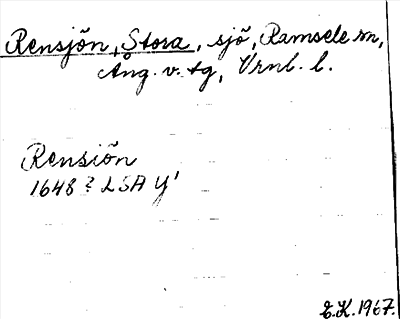 Rensjön, Stora, sjö, Ramsele sn,
Ång. v. tg, Vrnl. l.
Rensiön
1648? LSA Y'
E.K. 1967.